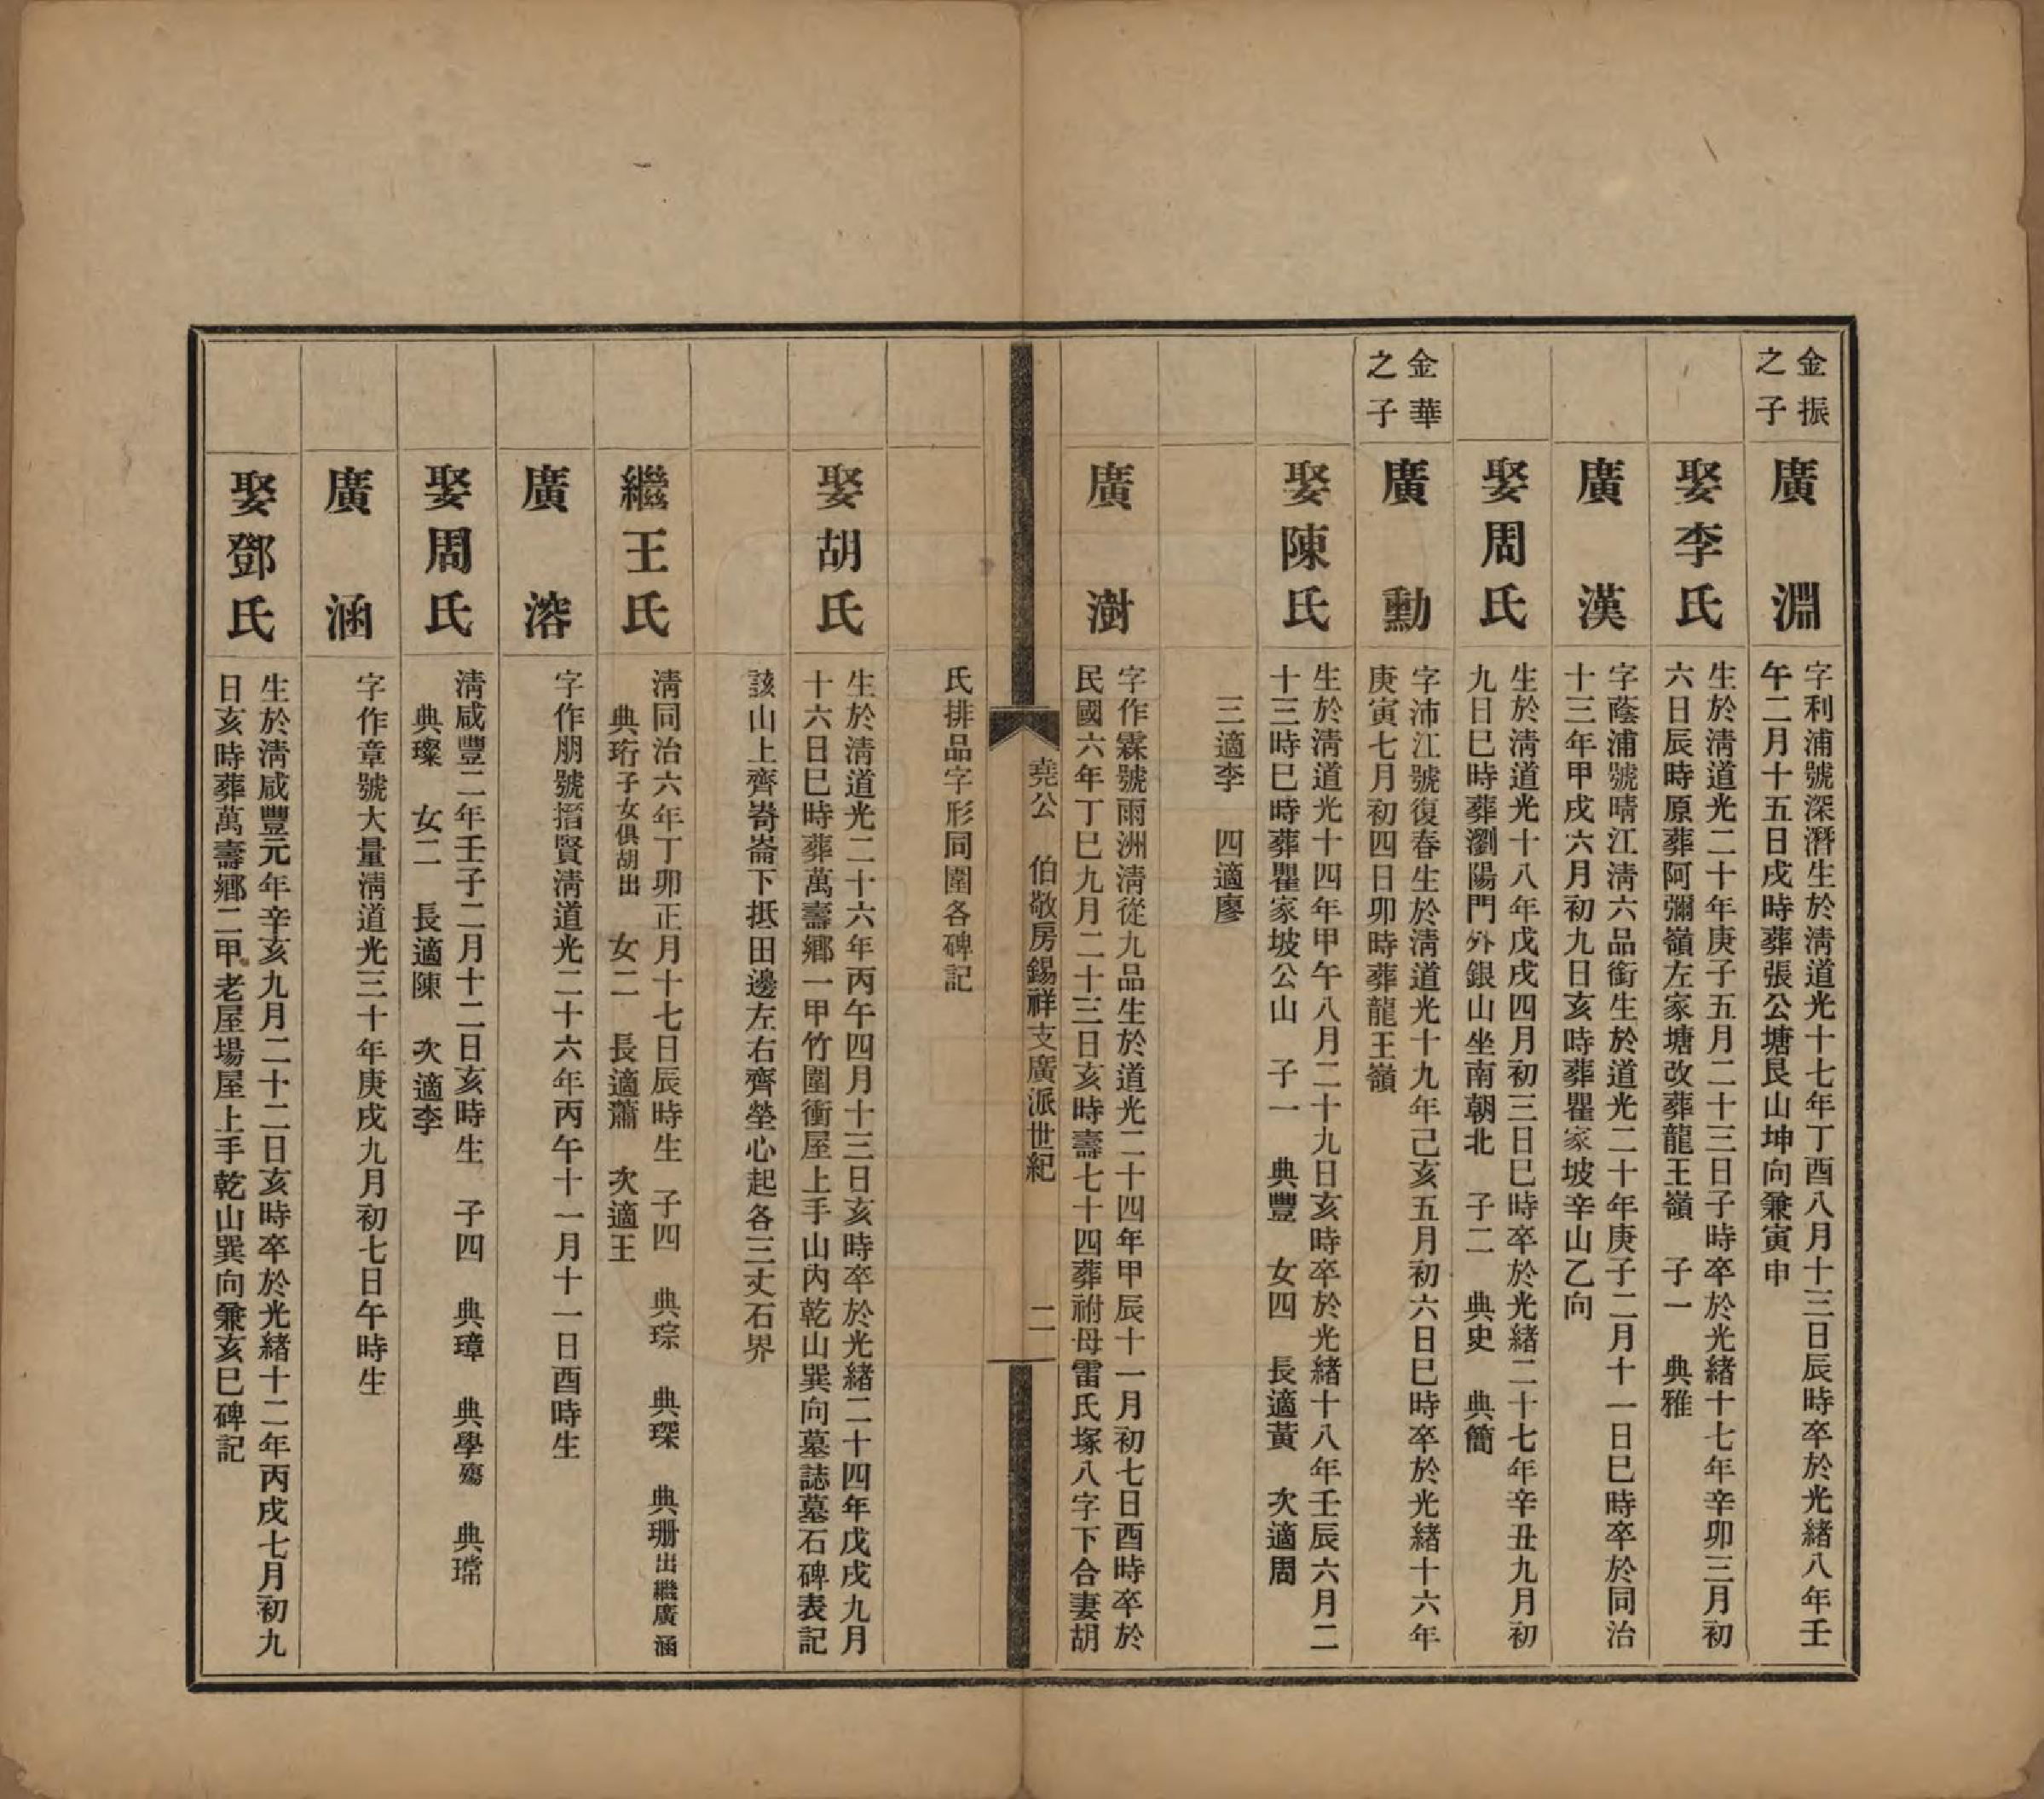 金振
之子
廣淵
字利浦號深潛生於清道光十七年丁酉八月十三日辰時卒於光緒八年壬
午二月十五日戌時葬張公塘艮山坤向兼寅申
娶李氏
生於清道光二十年庚子五月二十三日子時卒於光緒十七年辛卯三月初
六日辰時原葬阿彌嶺左家塘改葬龍王嶺　子一　典雅
廣漢
字蔭浦號晴江清六品銜生於道光二十年庚子二月十一日巳時卒於同治
十三年甲戌六月初九日亥時葬瞿家坡辛山乙向
娶周氏
生於清道光十八年戊戌四月初三日巳時卒於光緒二十七年辛丑九月初
九日巳時葬瀏陽門外銀山坐南朝北　子二　典史　典簡
金華
之子
廣勳
字沛江號復春生於清道光十九年己亥五月初六日巳時卒於光緒十六年
庚寅七月初四日卯時葬龍王嶺
娶陳氏
生於清道光十四年甲午八月二十九日亥時卒於光緒十八年壬辰六月二
十三時巳時葬瞿家坡公山　子一　典豐　女四　長適黃　次適周
三適李　四適廖
廣澍
字作霖號雨洲清從九品生於道光二十四年甲辰十一月初七日酉時卒於
民國六年丁巳九月二十三日亥時壽七十四葬祔母雷氏塚八字下合妻胡
堯公　伯敬房錫祥支廣派世紀　二
氏排品字形同圍各碑記
娶胡氏
生於清道光二十六年丙午四月十三日亥時卒於光緒二十四年戊戌九月
十六日巳時葬萬壽鄉一甲竹圍衝屋上手山內乾山巽向墓誌墓石碑表記
該山上齊崙下抵田邊左右齊塋心起各三丈石界
繼王氏
清同治六年丁卯正月十七日辰時生　子四　典琮　典琛　典珊出繼廣涵
典珩子女俱胡出　女二　長適蕭　次適王
廣溶
字作朋號搢賢清道光二十六年丙午十一月十一日酉時生
娶周氏
清咸豐二年壬子二月十二日亥時生　子四　典璋　典學殤　典瑺
典璨　女二　長適陳　次適李
廣涵
字作章號大量清道光三十年庚戌九月初七日午時生
娶鄧氏
生於清咸豐元年辛亥九月二十二日亥時卒於光緒十二年丙戌七月初九
日亥時葬萬壽鄉二甲老屋場屋上手乾山巽向兼亥巳碑記